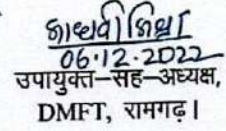 माधवी मिश्रा
06.12.2022
उपायुक्त-सह-अध्यक्ष,
DMFT, रामगढ़।